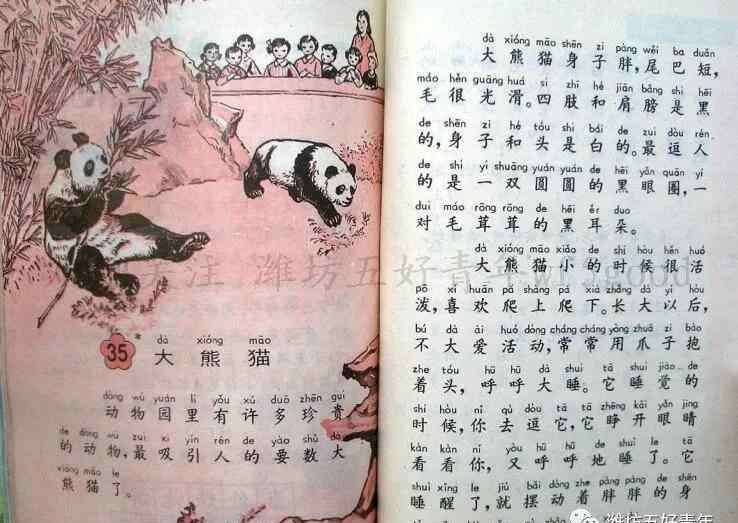 35
dà xióng māo
大熊猫
dòng wù yuán lǐ yǒu xǔ duō zhēn guì
动物园里有许多珍贵
de dòng wù zuì xī yǐn rén de yào shǔ dà
的动物,最吸引人的要数大
xióng māo le
熊猫了。
dà xióng māo shēn zi pàng wěi ba duǎn
大熊猫身子胖,尾巴短,
máo hěn guāng huá sì zhī hé jiān bǎng shì hēi
毛很光滑。四肢和肩膀是黑
de shēn zi hé tóu shì bái de zuì dòu rén
的,身子和头是白的。最逗人
de shì yì shuāng yuán yuán de hēi yǎn quān yí
的是一双圆圆的黑眼圈,一
duì máo rōng rōng de hēi ěr duo
对毛茸茸的黑耳朵。
dà xióng māo xiǎo de shí hòu hěn huó
大熊猫小的时候很活
pō xǐ huān pá shàng pá xià zhǎng dà yǐ hòu
泼,喜欢爬上爬下。长大以后,
bú dà ài huó dòng cháng cháng yòng zhuǎ zi bào
不大爱活动,常常用爪子抱
zhe tóu hū hū dà shuì tā shuì jiào de
着头,呼呼大睡。它睡觉的
shí hòu nǐ qù dòu tā tā zhēng kāi yǎn jing
时候,你去逗它,它睁开眼睛
kàn kàn nǐ yòu hū hū de shuì le tā
看看你,又呼呼地睡了。它
shuì xǐng le jiù bǎi dòng zhe pàng pàng de shēn
睡醒了,就摆动着胖胖的身
关注 潍坊五好青年
潍坊五好青年